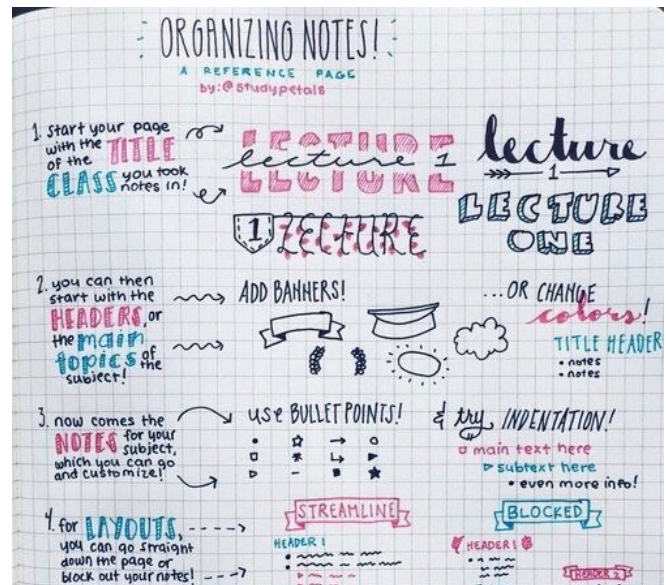 ORGANIZING NOTES!
A REFERENCE PAGE
by:@studypetals
1. start your page
with the TITLE
of the
CLASS you took
notes in!
LECTURE
lecture 1
lecture
1
1 LECTURE
LECTURE
ONE
2. you can then
start with the
HEADERS, or
the main
topics of
the
subject!
ADD BANNERS!
...OR CHANGE
colors!
TITLE HEADER
• notes
• notes
3. now comes the
NOTES for your
subject,
which you can go
and customize!
use BULLET POINTS!
& try INDENTATION!
main text here
subtext here
• even more info!
4. for LAYOUTS,
you can go straight
down the page or
block out your notes!
STREAMLINE
HEADER 1
BLOCKED
HEADER 1
HEADER 2